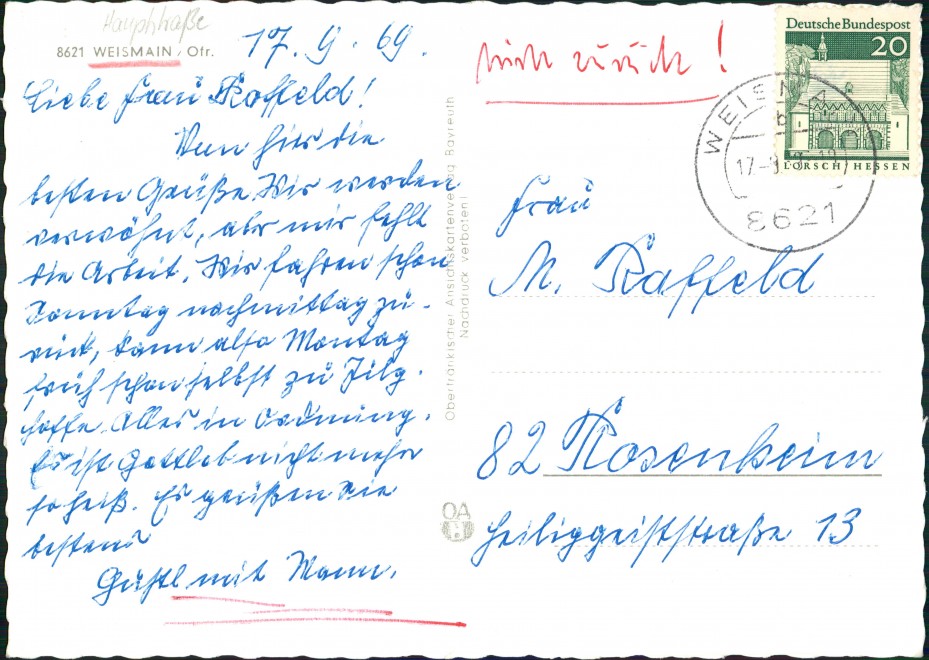 Hauptstraße
8621 WEISMAIN, Ofr.
17. 9. 69.
Liebe Frau Raffeld!
Von hier die
besten Grüße. Wir werden
verwöhnt, aber mir fehlt
die Arbeit. Wir fahren schon
Sonntag nachmittag zu-
rück, kann also Montag
früh schon selbst zu Filg.
hoffe Alles in Ordnung.
Es ist Gottlob nicht mehr
so heiß. Es grüßen Sie
bestens
Gustl mit Mann.
Oberfränkischer Ansichtskartenverlag Bayreuth
Nachdruck verboten!
OA
zurück!
Deutsche Bundespost
20
LORSCH/HESSEN
WEISM
17.-9.
8621
Frau
M. Raffeld
82 Rosenheim
Heiliggeiststraße 13